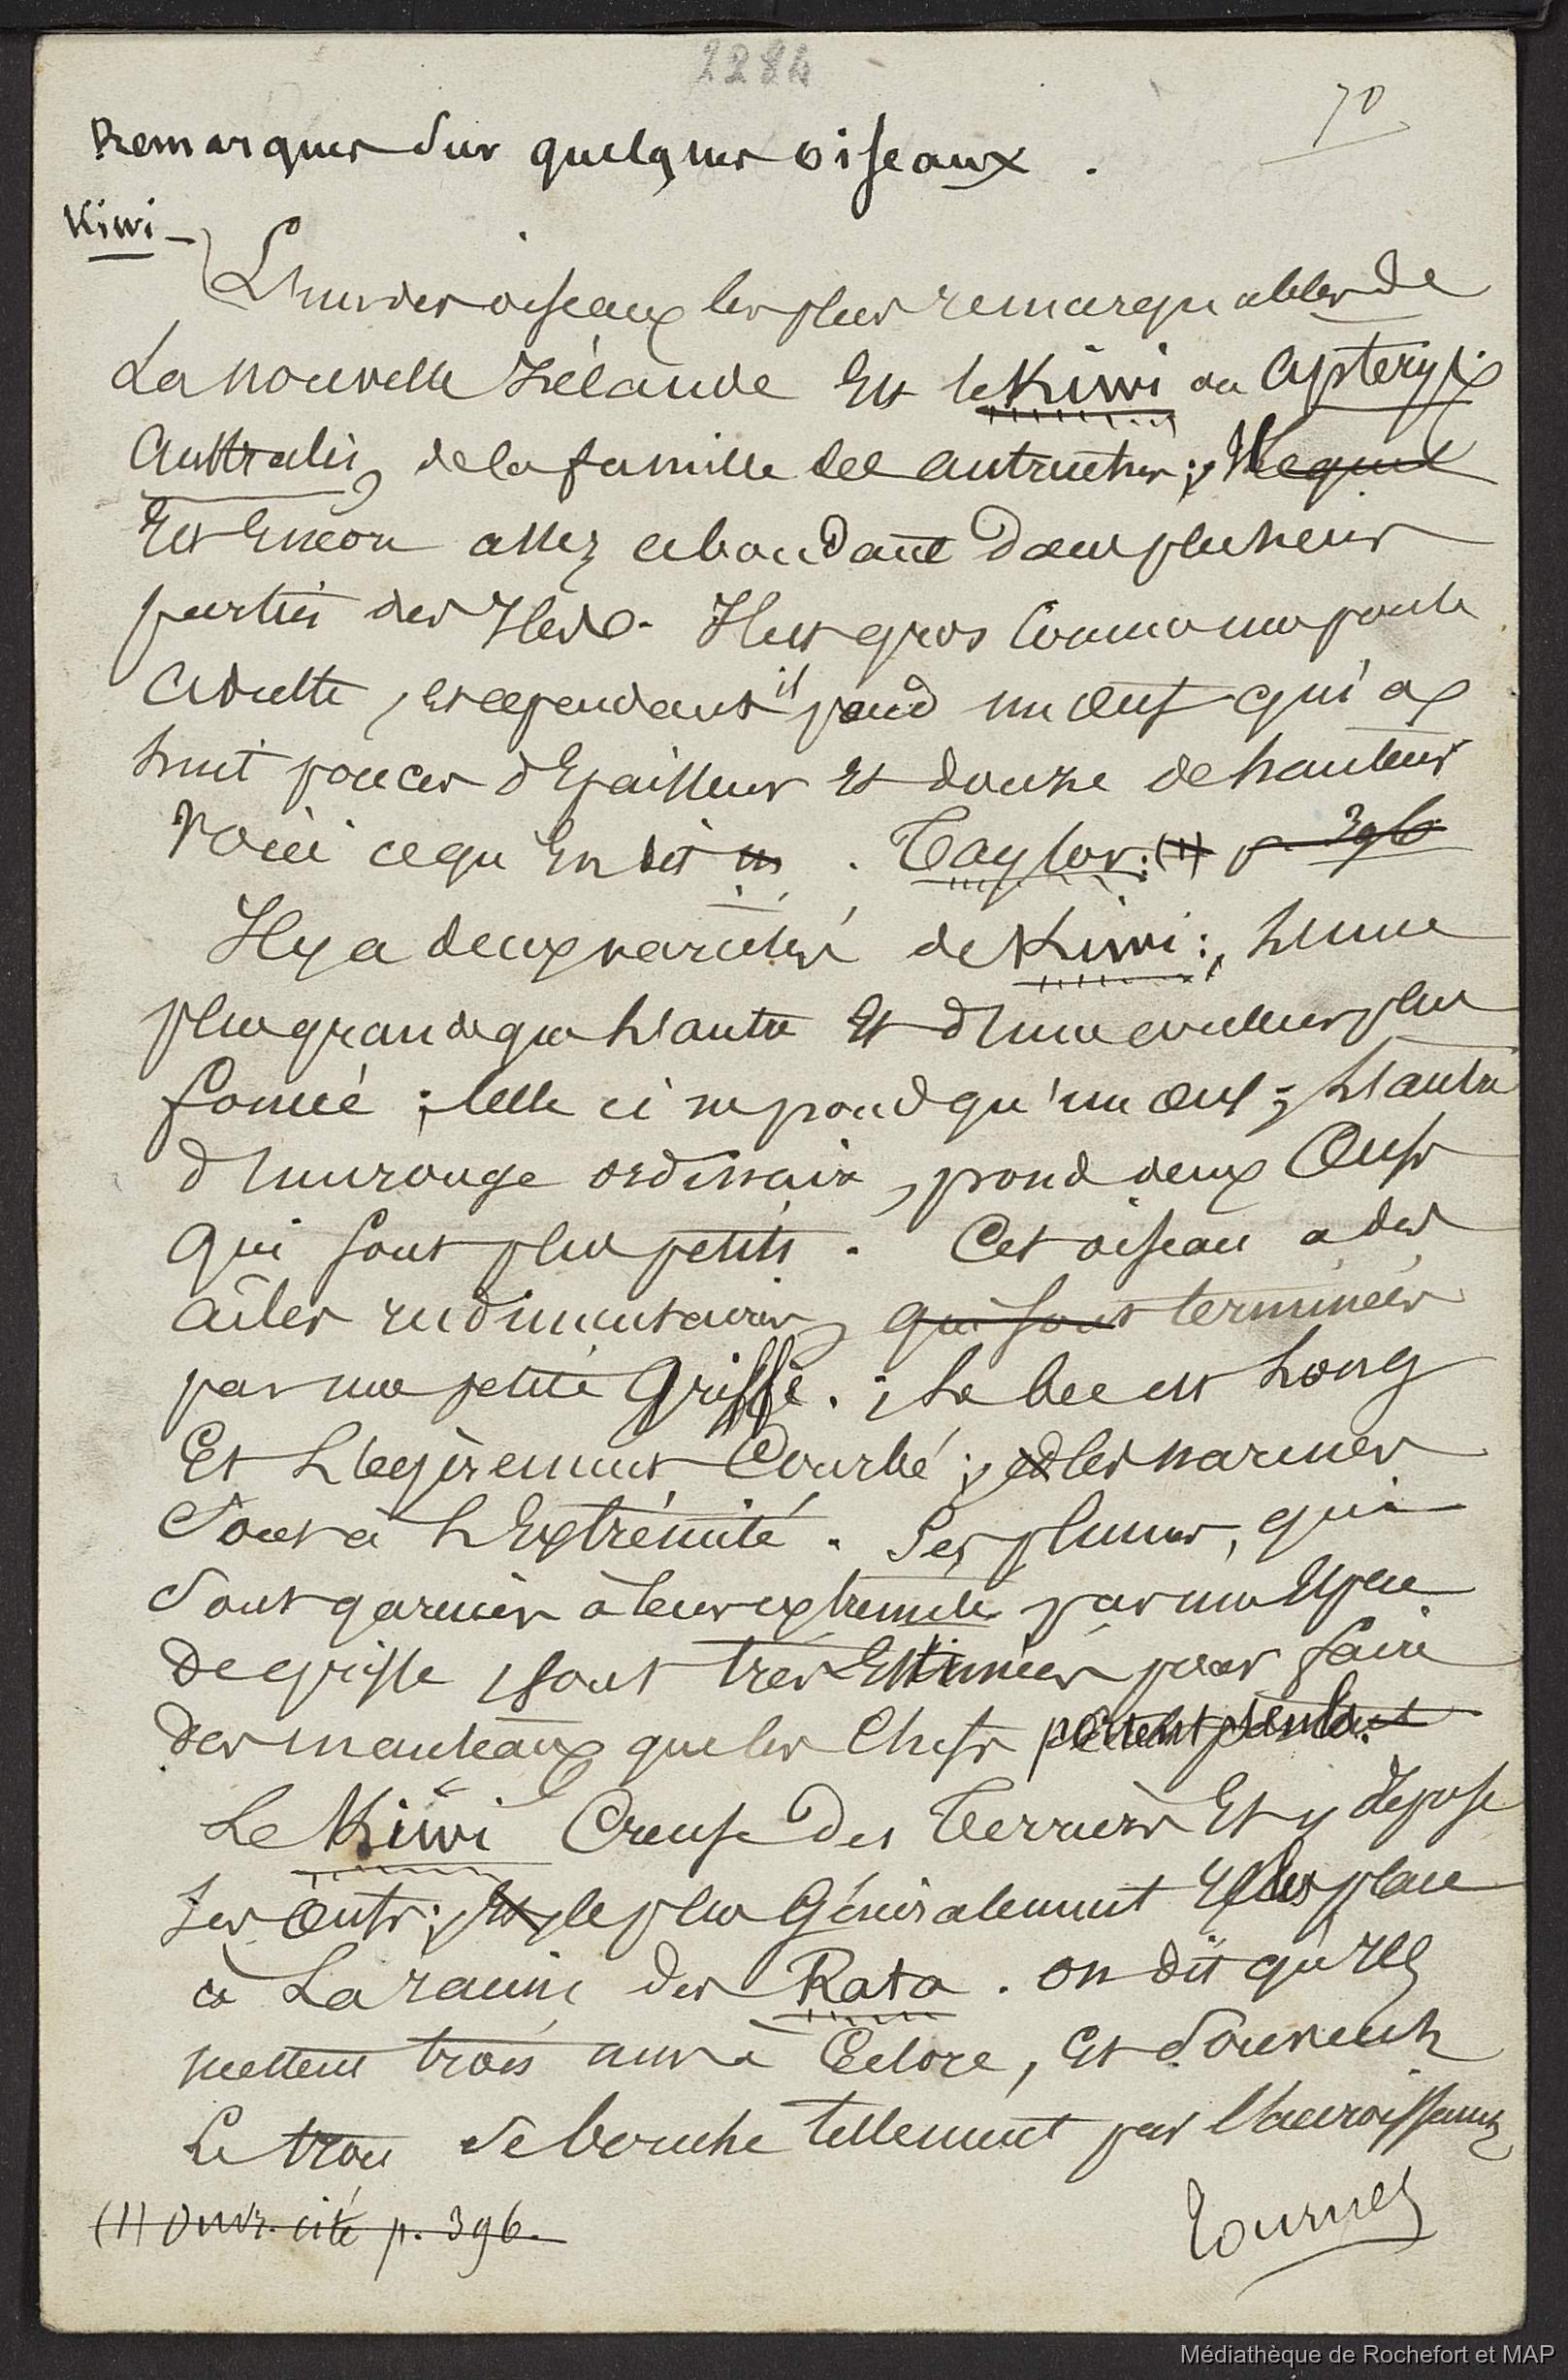 2284
70
Remarques sur quelques oiseaux.
Kiwi -
L'un des oiseaux les plus remarquables de
La nouvelle Zélande Est le Kiwi ou Apteryx
Australis, de la famille des autruches; Il lequel
Est Encore assez abondant dans plusieurs
parties des Iles. Il est gros Comme une poule
Adulte, et cependant il pond un œuf qui a
huit pouces d'Epaisseur Et douze de hauteur
Voici ce qu'En dit . Taylor: (1) p. 396
Il y a deux variétés de Kiwi: L'une
plus grande que L'autre Et d'une couleur plus
foncée; Celle ci ne pond qu'un œuf; L'autre
d'un rouge ordinaire, pond deux Œufs
Qui sont plus petits. Cet oiseau a des
Ailes rudimentaires, qui sont terminées
par une petite Griffe.; Le bec est Long
Et Légèrement Courbé; et les narines
Sont à L'Extrémité. Ses plumes, qui
Sont garnies à leur extremité par une Espece
De griffe, sont très Estimées pour faire
Des manteaux que les Chefs portent
Le Kiwi Creuse Des Terriers Et y dépose
Ses Œufs; Et, le plus Généralement Il les place
à La racine des Rata. on dit qu'Ils
mettent trois ans à Eclore, Et Souvent
Le trou se bouche tellement par l'accroissement
(1) Ouvr. cité p. 396.
Tournez